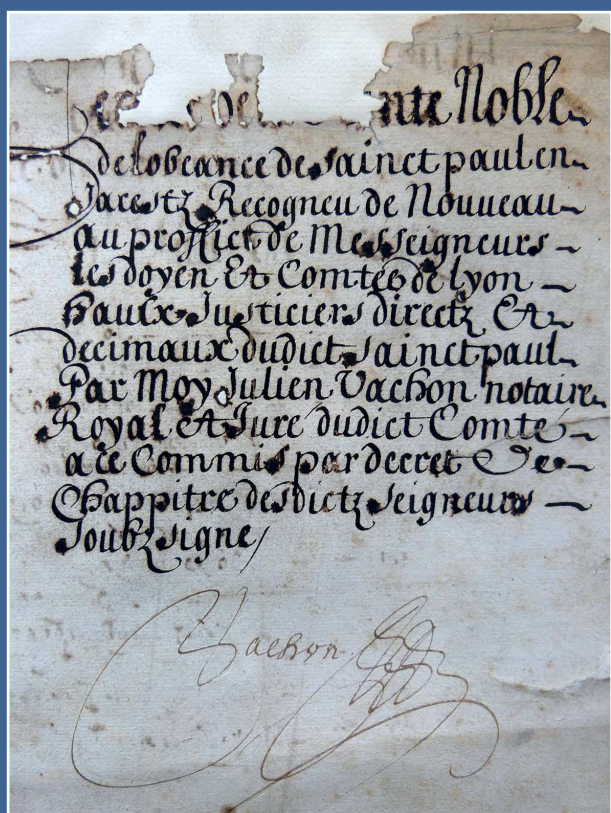 de la Rente Noble
de lobeance de sainct paul en
Jarestz Recogneu de Nouueau
au proffict de Messeigneurs
les doyen Et Comtes de lyon
haulx Justiciers directz Et
decimaux dudict sainct paul
Par Moy Julien Vachon notaire
Royal et Juré dudict Comté
a ce Commis par decret De
Chappitre desdictz seigneurs
soubzsigne
Vachon